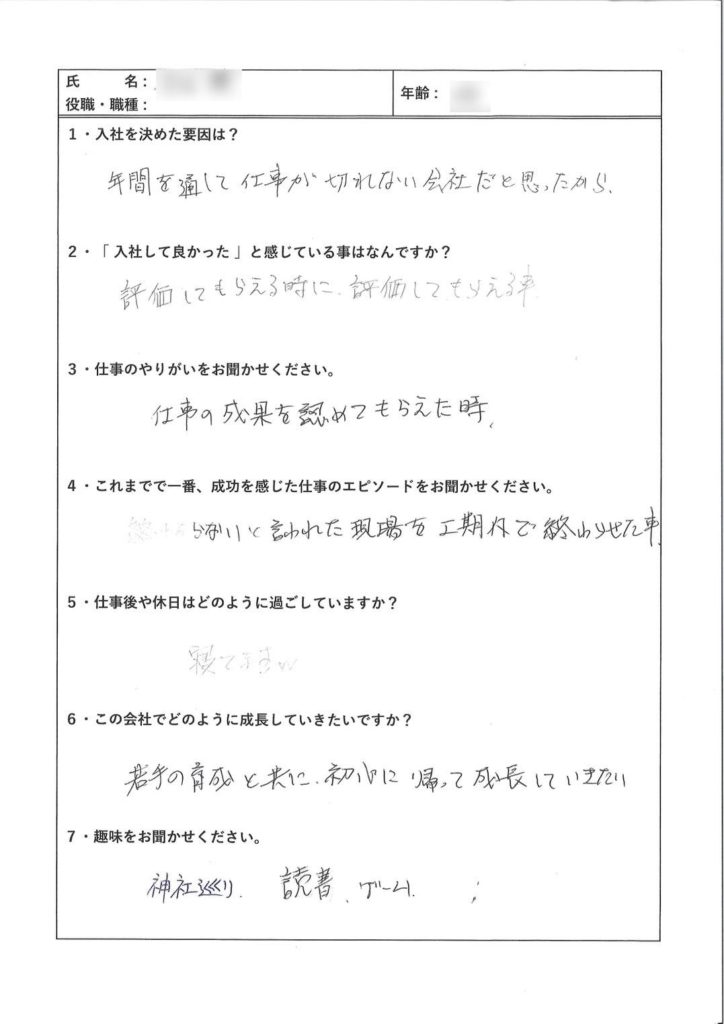 氏　名：
役職・職種：
年齢：
1・入社を決めた要因は？
年間を通して仕事が切れない会社だと思ったから、
2・「入社して良かった」と感じている事はなんですか？
評価してもらえる時に、評価してもらえる事
3・仕事のやりがいをお聞かせください。
仕事の成果を認めてもらえた時、
4・これまでで一番、成功を感じた仕事のエピソードをお聞かせください。
らないと言われた現場を工期内で終わらせた事、
5・仕事後や休日はどのように過ごしていますか？
寝てます
6・この会社でどのように成長していきたいですか？
若手の育成と共に、初心に帰って成長していきたい
7・趣味をお聞かせください。
神社巡り、読書、ゲーム